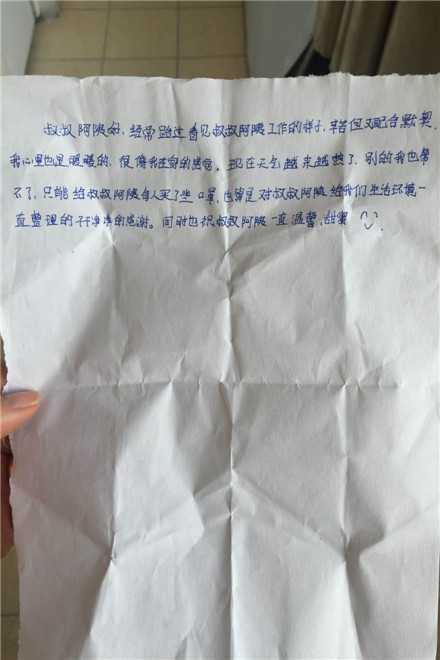 叔叔阿姨好,经常路过看见叔叔阿姨工作的样子,辛苦但又配合默契.
我心里也是暖暖的.很像我在家的感觉.现在天气越来越热了.别的我也帮
不了,只能给叔叔阿姨每人买了些口罩,也算是对叔叔阿姨给我们生活环境一
直整理的干干净净的感谢。同时也祝叔叔阿姨一直温馨,甜蜜